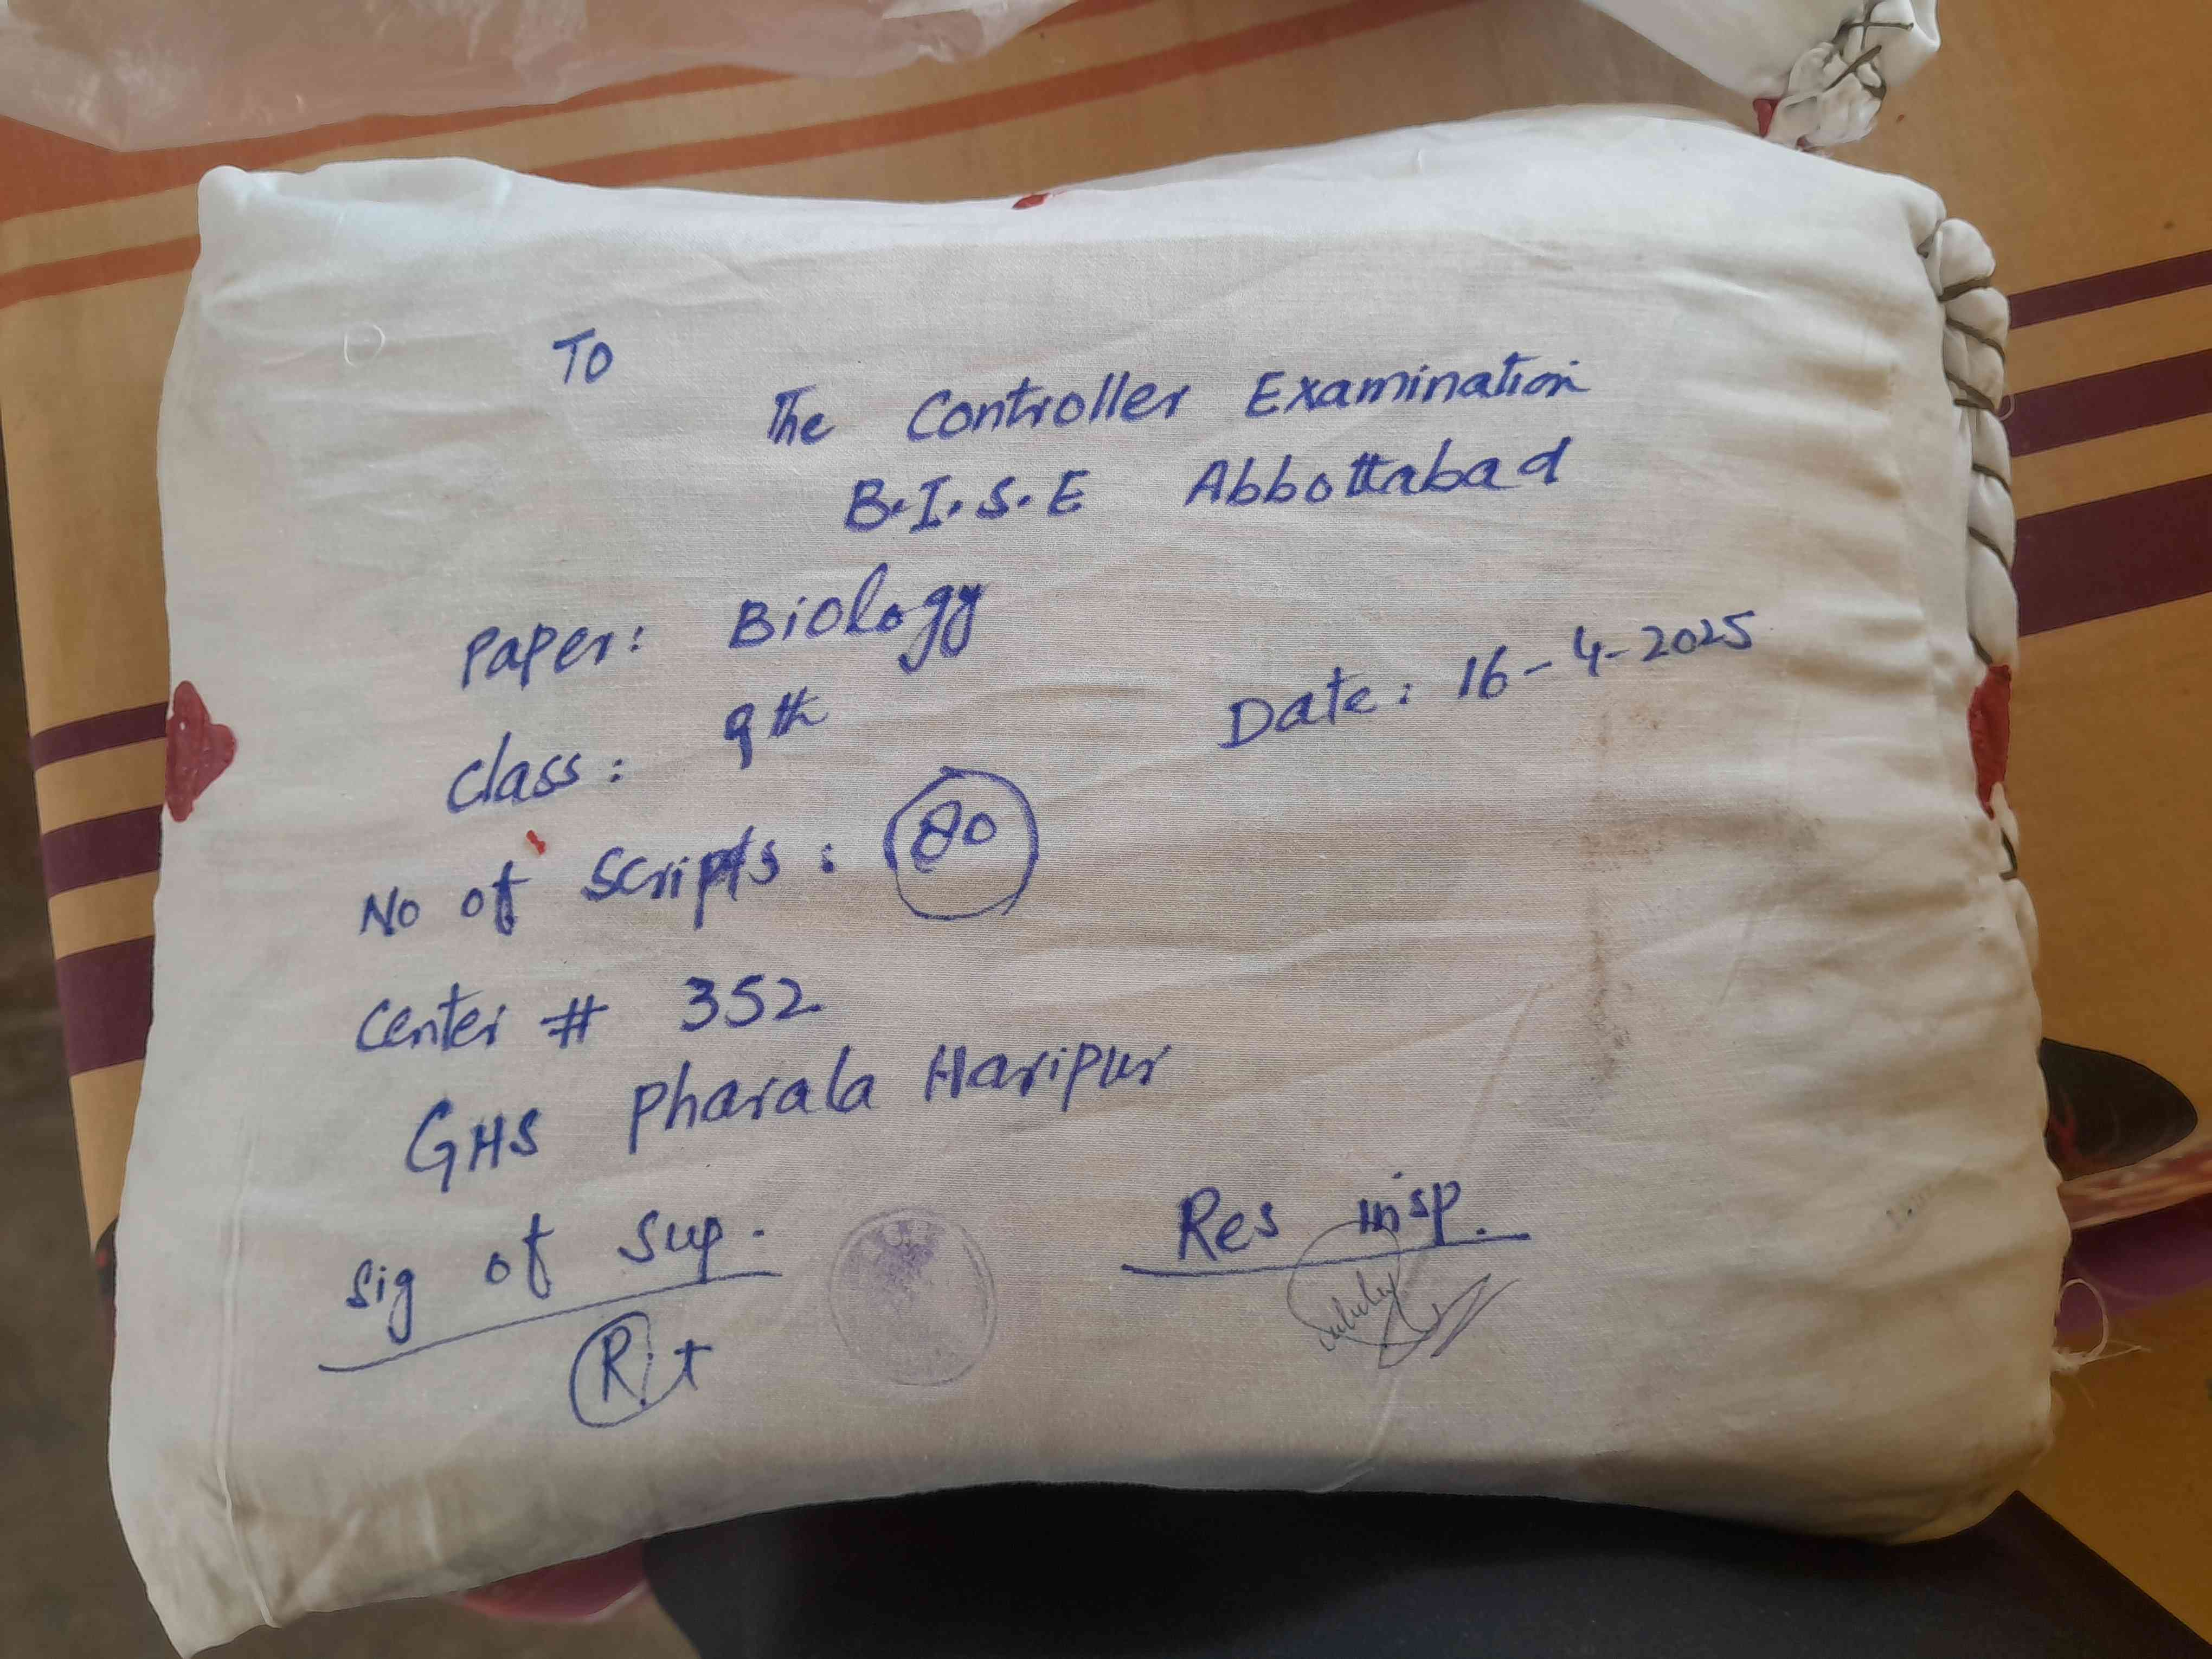 To
The Controller Examination
B.I.S.E Abbottabad
Paper: Biology
Class: 9th
Date: 16-4-2025
No of Scripts: 80
Center # 352
GHS Pharala Haripur
Sig of Sup.
Res insp.